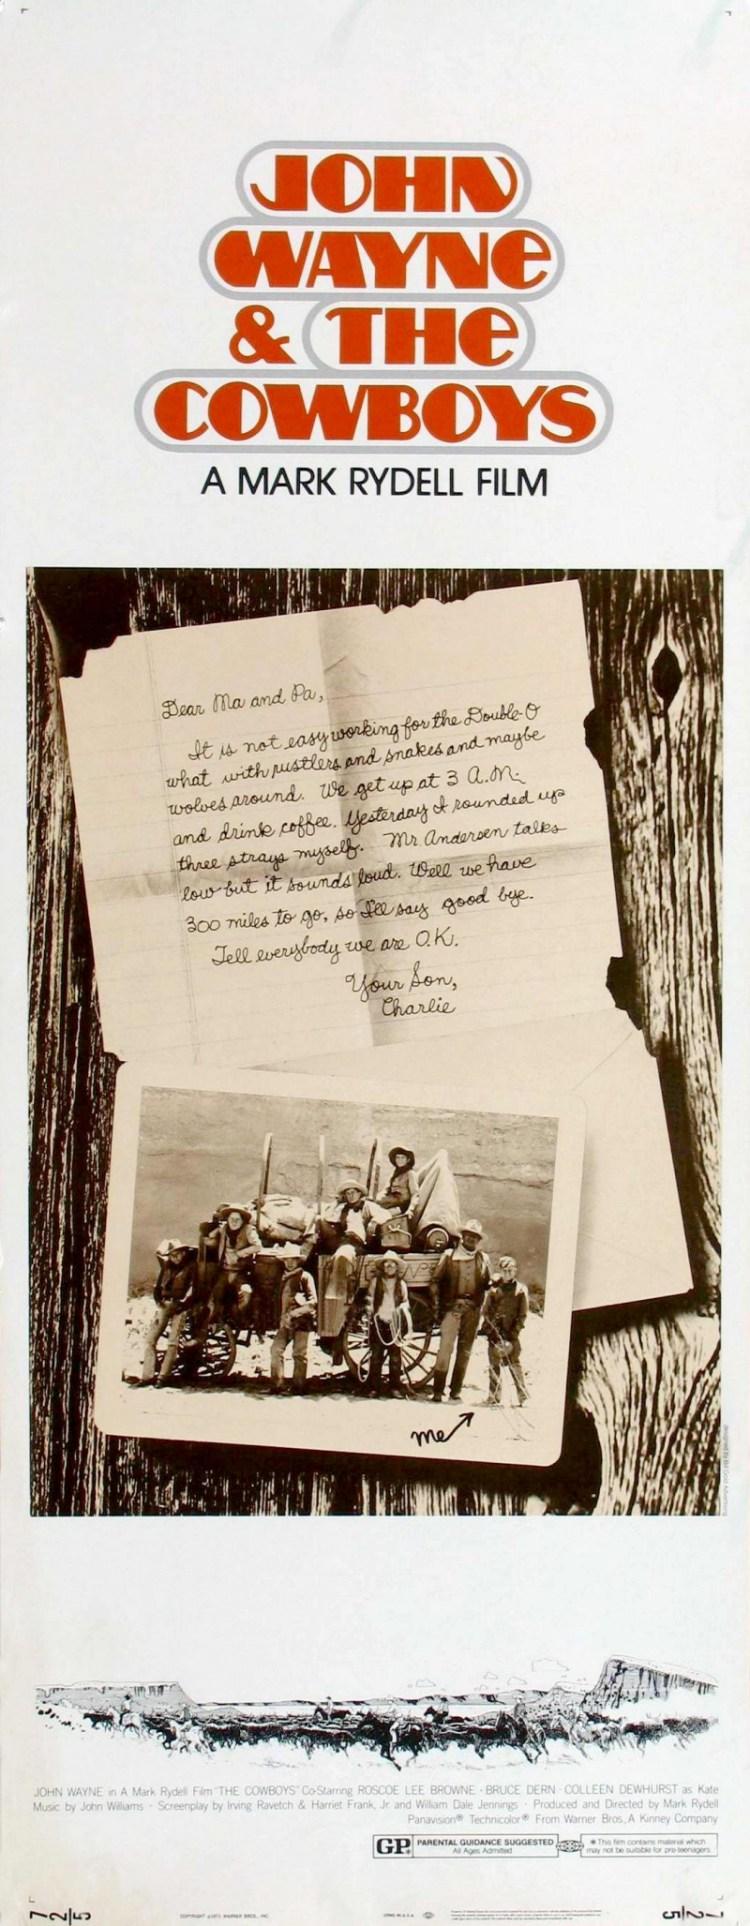 JOHN
WAYNE
& THE
COWBOYS
A MARK RYDELL FILM
Dear Ma and Pa,
It is not easy working for the Double-O
what with rustlers and snakes and maybe
wolves around. We get up at 3 A.M.
and drink coffee. Yesterday I rounded up
three strays myself. Mr Andersen talks
low but it sounds loud. Well we have
300 miles to go, so I'll say good bye.
Tell everybody we are O.K.
Your Son,
Charlie
me
JOHN WAYNE in A Mark Rydell Film "THE COWBOYS" Co-Starring ROSCOE LEE BROWNE · BRUCE DERN · COLLEEN DEWHURST as Kate
Music by John Williams · Screenplay by Irving Ravetch & Harriet Frank, Jr. and William Dale Jennings · Produced and Directed by Mark Rydell
Panavision® Technicolor® From Warner Bros., A Kinney Company
GP PARENTAL GUIDANCE SUGGESTED
All Ages Admitted
This film contains material which
may not be suitable for pre-teenagers.
72/5
COPYRIGHT ©1971 WARNER BROS., INC.
72/5